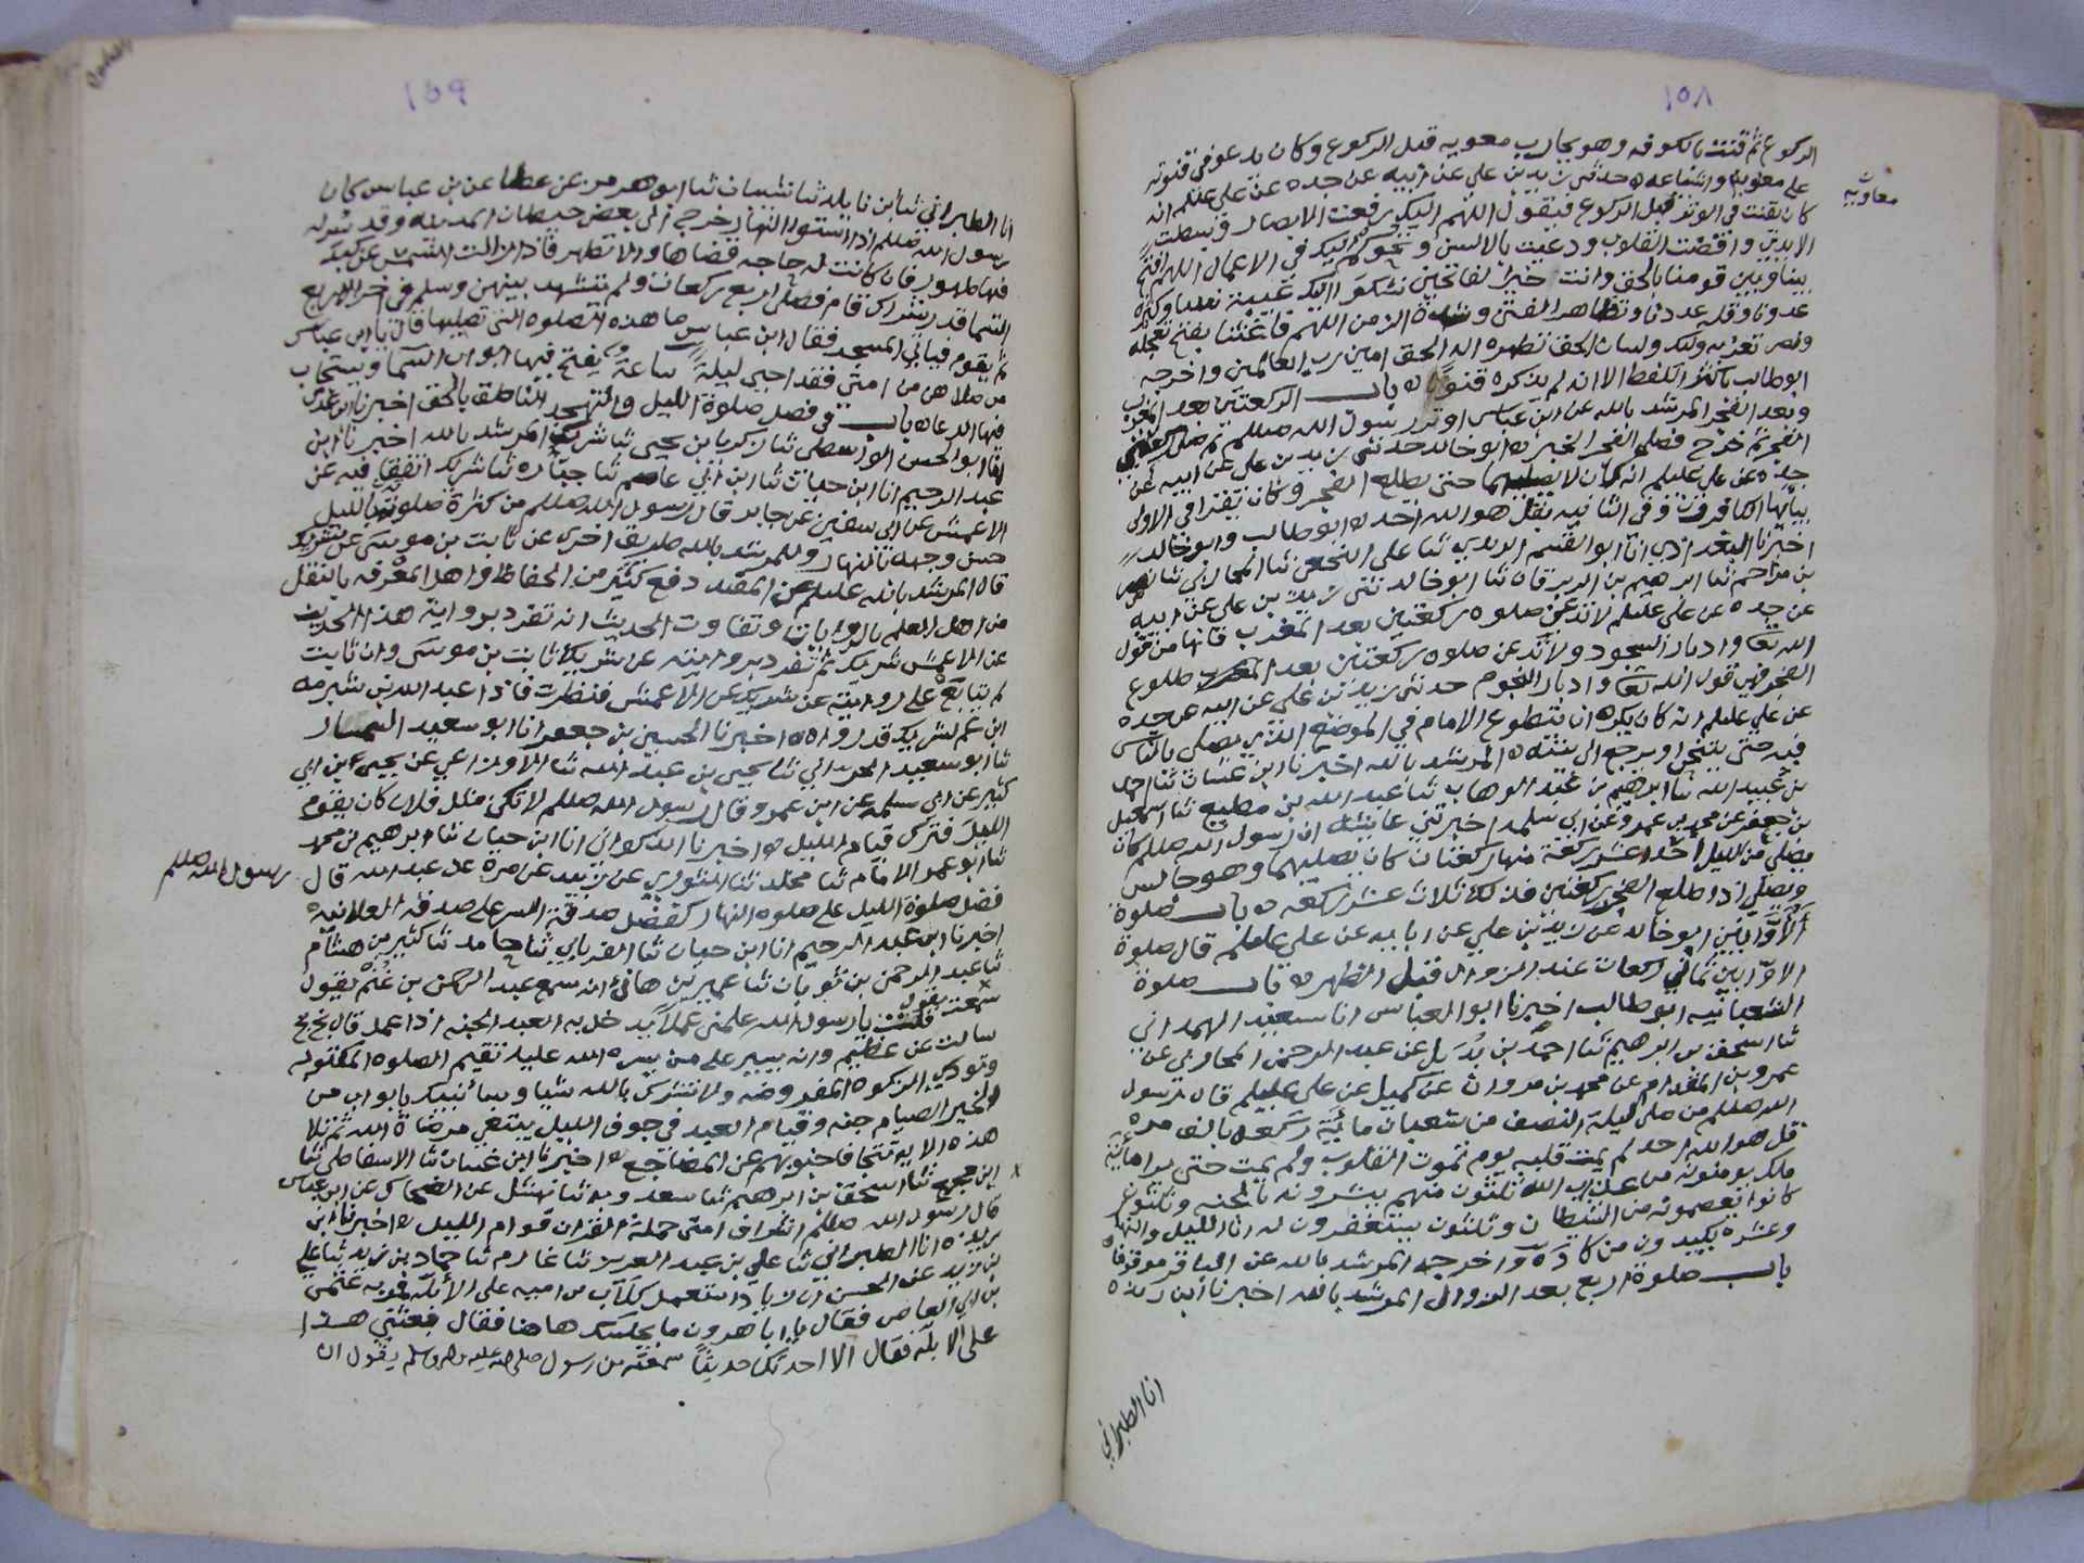 ١٥٨
الركوع ثم قنت بالكوفه وهو يحارب معويه قبل الركوع وكان يدعو في قنوته
على معويه واشياعه حدثني زيد بن علي عن ابيه عن جده عن علي عليلم انه
معاويه
كان يقنت في الوتر قبل الركوع فيقول اللهم اليك رفعت الابصار وبسطت
الايدي وافضت القلوب ودعيت بالالسن وتحوكم اليك في الاعمال اللهم افتح
بيننا وبين قومنا بالحق وانت خير الفاتحين نشكوا اليك غيبة نبينا وكثرة
عدونا وقله عددنا وتظاهر الفتن وشدة الزمن اللهم فاغثنا بفتح تعجله
ونصر تعز به وليك ولسان الحق تظهره اله الحق امين رب العالمين واخرجه
ابو طالب باكثر اللفظ الا انه لم يذكره قنوتا باب الركعتين بعد المغرب
وبعد الفجر المرشد بالله عن ابن عباس اوتر رسول الله صللم ثم صلى ركعتي
الفجر ثم خرج فصلى الفجر الخبر ابو خالد حدثني زيد بن علي عن ابيه عن
جده عن علي عليلم انه كان لا يصليهما حتى يطلع الفجر وكان يقرا في الاولى
بيايها الكافرون وفي الثانيه بقل هو الله احد ابو طالب وابو خالد
اخبرنا البغدادي انا ابو القسم الزيدي ثنا علي النخعي ثنا المحاربي ثنا نصر
بن مزاحم ثنا ابرهيم بن الزبرقان ثنا ابو خالد ثنى زيد بن علي عن ابيه
عن جده عن علي عليلم لا تدعن صلوه ركعتين بعد المغرب فانها من قول
الله تعا وادبار السجود ولا تدعن صلوه ركعتين بعد طلوع
الفجر فهي قول الله تعا وادبار النجوم حدثني زيد بن علي عن ابيه عن جده
عن علي عليلم انه كان يكره ان يتطوع الامام في الموضع الذي يصلي بالناس
فيه حتى يتنحى او يرجع الى بيته المرشد بالله اخبرنا ابن غسان ثنا احمد
بن عبيد الله ثنا ابرهيم بن عبد الوهاب ثنا عبد الله بن مطيع ثنا اسمعيل
بن جعفر عن محمد بن عمرو عن ابي سلمه اخبرتني عائشه ان رسول الله صللم كان
يصلي من الليل احدا عشر ركعة منها ركعتان كان يصليهما وهو جالس
ويصلي اذا طلع الفجر ركعتين فذلك ثلاث عشر ركعه باب صلوة
الاوابين ابو خالد عن زيد بن علي عن ابايه عن علي عليلم قال صلوة
الاوابين ثماني ركعات عند الزوال قبل الظهر باب صلوة
الشعبانيه ابو طالب اخبرنا ابو العباس انا سعيد الهمداني
ثنا اسحق بن ابرهيم ثنا احمد بن بديل عن عبد الرحمن المحاربي عن
عمرو بن المقدام عن محمد بن مروان عن كميل عن علي عليلم قال رسول
الله صللم من صلى ليلة النصف من شعبان مائية ركعه بالف مره
قل هو الله احد لم يمت قلبه يوم تموت القلوب ولم يمت حتى يرا مائية
ملك يومنونه من عذاب الله ثلثون منهم يبشرونه بالجنه وثلثون
كانوا يعصمونه من الشيطان وثلثون يستغفرون له انا الليل والنهار
وعشره يكيدون من كاده واخرجه المرشد بالله عن الباقر موقوفا
باب صلوة اربع بعد الزوال المرشد بالله اخبرنا ابن ريذه
انا الطبراني
١٥٩
انا الطبراني ثنا ابن نايله ثنا شيبان ثنا ابو هرمز عن عطا عن بن عباس كان
رسول الله صللم اذا استوا النهار خرج الى بعض حيطان المدينه وقد يسر له
فيها طهور فان كانت له حاجه قضاها والا تطهر فاذا زالت الشمس عن كبد
السما قدر شراك قام فصلى اربع ركعات ولم يتشهد بينهن وسلم في اخر الاربع
ثم يقوم فياتي المسجد فقال ابن عباس ما هذه الصلوه التي تصليها قال يا ابن عباس
من صلاهن من امتي فقد احيى ليلة ساعة يفتح فيها ابواب السما ويستجاب
فيها الدعا باب في فضل صلوة الليل والتهجد الناطق بالحق اخبرنا ابن عدي
انا ابو الحسن الواسطي ثنا زكريا بن يحيى ثنا شريك المرشد بالله اخبرنا ابن
عبد الرحيم انا ابن حيان ثنا ابن ابي عاصم ثنا جباره ثنا شريك اتفقا فيه عن
الاعمش عن ابي سفين عن جابر قال رسول الله صللم من كثرة صلوته بالليل
حسن وجهه بالنهار وللمرشد بالله طريق اخرى عن ثابت بن موسى عن شريك
قال المرشد بالله عليلم عن المقتد دفع كثير من الحفاظ واهل المعرفه بالنقل
من اهل العلم بالروايات وتفاوت الحديث انه تفرد برواية هذا الحديث
عن الاعمش شريك ثم تفرد بروايته عن شريك ثابت بن موسى وان ثابت
لم يتابع على روايته عن شريك عن الاعمش فنظرت فاذا عبد الله بن شبرمه
ابن عم لشريك قد رواه اخبرنا الحسين بن جعفر انا ابو سعيد السمسار
ثنا ابو سعيد الحراني ثنا يحيى بن عبد الله ثنا الاوزاعي عن يحيى بن ابي
كثير عن ابي سلمه عن ابن عمرو قال رسول الله صللم لا تكن مثل فلان كان يقوم
الليل فترك قيام الليل اخبرنا الذكواني انا ابن حيان ثنا ابرهيم بن محمد
ثنا ابو عمر الامام ثنا مخلد ثنا الثوري عن زبيد عن مرة عن عبد الله قال
رسول الله صللم
فضل صلوة الليل على صلوه النهار كفضل صدقة السر على صدقه العلانيه
اخبرنا ابن عبد الرحيم انا ابن حيان ثنا الفريابي ثنا حامد ثنا كثير بن هشام
ثنا عبد الرحمن بن ثوبان ثنا عمير بن هاني انه سمع عبد الرحمن بن غنم يقول
سمعت يقول
قلت يا رسول الله علمني عملا يدخل به العبد الجنه اذا عمله قال بخ بخ
سالت عن عظيم وانه يسير على من يسره الله عليه تقيم الصلوه المكتوبه
وتودي الزكوه المفروضه ولا تشرك بالله شيا وسانبيك بابواب من
الخير الصيام جنه وقيام العبد في جوف الليل يبتغي مرضاة الله ثم تلا
هذه الايه تتجافا جنوبهم عن المضاجع اخبرنا ابن غسان ثنا الاسفاطي ثنا
ثنا اسحق بن ابرهيم ثنا سعدويه ثنا نهشل عن الضحاك عن ابن عباس
قال رسول الله صللم اشراف امتي حملة القران قوام الليل اخبرنا ابن
ريذه انا الطبراني ثنا علي بن عبد العزيز ثنا عارم ثنا حماد بن زيد ثنا علي
بن زيد عن الحسن ان زيادا استعمل كلاب من اميه على الابله فمر به عثمن
بن ابي العاص فقال يا ابا هرون ما يجلسك هاهنا فقال بعثني هذا
على الابله فقال الا احدثك حديثا سمعته من رسول صلى الله عليه واله وسلم يقول ان